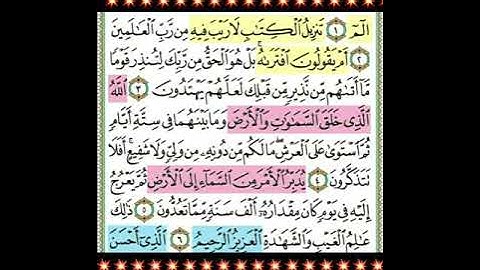 الٓمٓ ١ تَنزِيلُ ٱلْكِتَٰبِ لَا رَيْبَ فِيهِ مِن رَّبِّ ٱلْعَٰلَمِينَ
٢ أَمْ يَقُولُونَ ٱفْتَرَىٰهُ ۚ بَلْ هُوَ ٱلْحَقُّ مِن رَّبِّكَ لِتُنذِرَ قَوْمًا
مَّآ أَتَىٰهُم مِّن نَّذِيرٍ مِّن قَبْلِكَ لَعَلَّهُمْ يَهْتَدُونَ ٣ ٱللَّهُ
ٱلَّذِى خَلَقَ ٱلسَّمَٰوَٰتِ وَٱلْأَرْضَ وَمَا بَيْنَهُمَا فِى سِتَّةِ أَيَّامٍ
ثُمَّ ٱسْتَوَىٰ عَلَى ٱلْعَرْشِ ۖ مَا لَكُم مِّن دُونِهِۦ مِن وَلِىٍّ وَلَا شَفِيعٍ ۚ أَفَلَا
تَتَذَكَّرُونَ ٤ يُدَبِّرُ ٱلْأَمْرَ مِنَ ٱلسَّمَآءِ إِلَى ٱلْأَرْضِ ثُمَّ يَعْرُجُ
إِلَيْهِ فِى يَوْمٍ كَانَ مِقْدَارُهُۥٓ أَلْفَ سَنَةٍ مِّمَّا تَعُدُّونَ ٥ ذَٰلِكَ
عَٰلِمُ ٱلْغَيْبِ وَٱلشَّهَٰدَةِ ٱلْعَزِيزُ ٱلرَّحِيمُ ٦ ٱلَّذِىٓ أَحْسَنَ